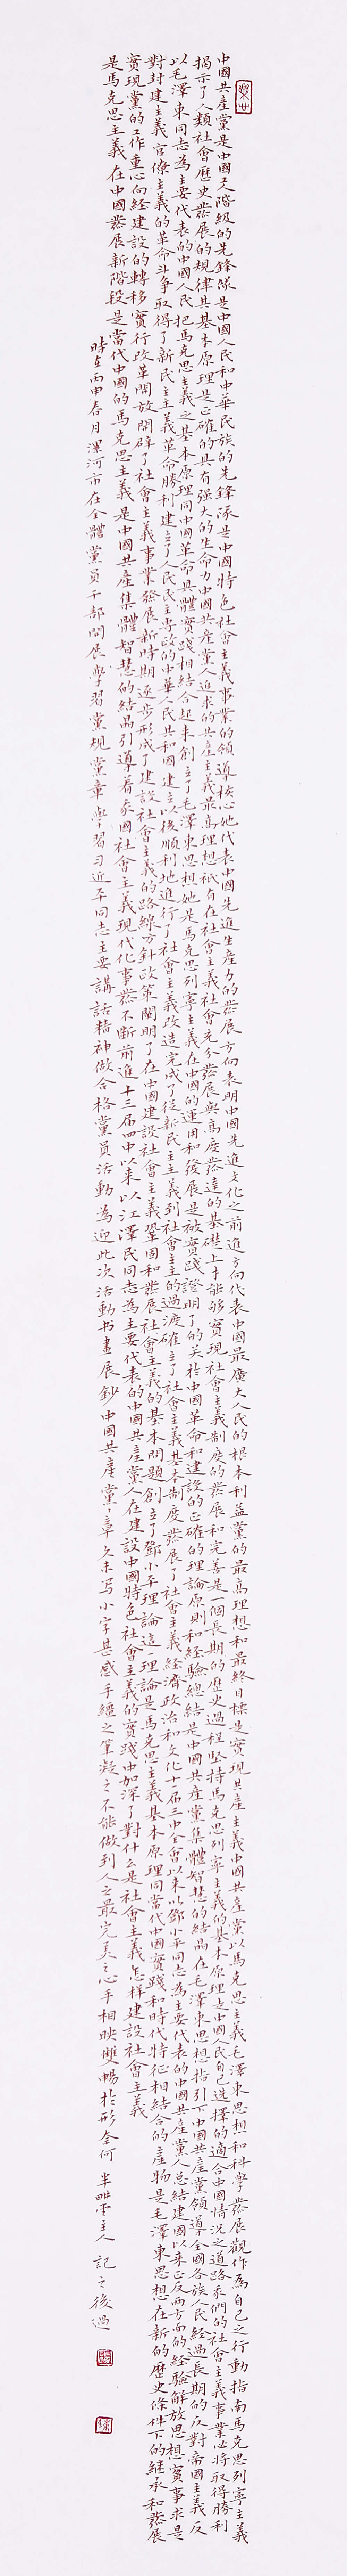 中國共產黨是中國工階級的先鋒隊是中國人民和中華民族的先鋒隊是中國特色社會主義事業的領導核心她代表中國先進生產力的發展方向表明中國先進文化之前進方向代表中國最廣大人民的根本利益黨的最高理想和最終目標是實現共產主義中國共產黨以馬克思主義毛澤東思想和科學發展觀作為自己之行動指南馬克思列寧主義
揭示了人類社會歷史發展的規律其基本原理是正確的具有强大的生命力中國共產黨人追求的共產主義最高理想祇有在社會主義社會充分發展與高度發達的基礎上才能够實現社會主義制度的發展和完善是一個長期的歷史過程堅持馬克思列寧主義的基本原理走中國人民自己選擇的適合中國情况之道路我們的社會主義事業必將取得勝利
以毛澤東同志為主要代表的中國人民把馬克思主義之基本原理同中國革命具體實踐相結合起來創立了毛澤東思想她是馬克思列寧主義在中國的運用和發展是被實踐證明了的关於中國革命和建設的正確的理論原則和經驗總結是中國共產黨集體智慧的結晶在毛澤東思想指引下中國共產黨領導全國各族人民經過長期的反對帝國主義反
對封建主義官僚主義的革命斗争取得了新民主主義革命勝利建立了人民民主專政的中華人民共和國建立以後順利地進行了社會主義改造完成了從新民主主義到社會主主的過渡確立了社會主義基本制度發展了社會主義經濟政治和文化十一届三中全會以來以鄧小平同志為主要代表的中國共產黨人总結建國以來正反两方面的經驗解放思想實事求是
實現黨的工作重心向經建設的轉移實行改革開放開辟了社會主義事業發展新時期逐步形成了建設社會主義的路線方針政策闡明了在中國建設社會主義鞏固和發展社會主義的基本問題創立了鄧小平理論這一理論是馬克思主義基本原理同當代中國實踐和時代特征相結合的產物是毛澤東思想在新的歷史條件下的繼承和發展
是馬克思主義在中國發展新階段是當代中國的馬克思主義是中國共產集體智慧的結晶引導着我國社會主義現代化事業不斷前進十三届四中以來以江澤民同志為主要代表的中國共產黨人在建設中國特色社會主義的實踐中加深了對什么是社會主義怎樣建設社會主義
時在丙申春月漯河市在全體黨員干部開展學習黨規黨章學習习近平同志主要講話精神做合格黨員活動為迎此次活動书畫展鈔中國共產黨章久未写小字甚感手繮之筆凝之不能做到人之最完美之心手相映雙暢於形奈何半畝雲主人記之後過